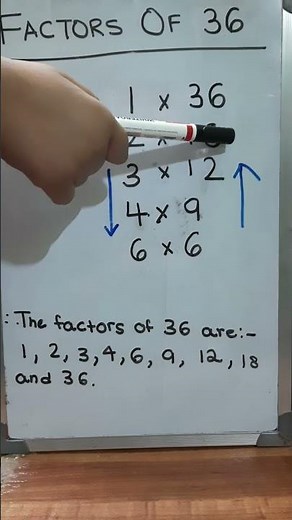 FACTORS OF 36
1 x 36
2 x
3 x 12
4 x 9
6 x 6
∴ The factors of 36 are:-
1, 2, 3, 4, 6, 9, 12, 18
and 36.